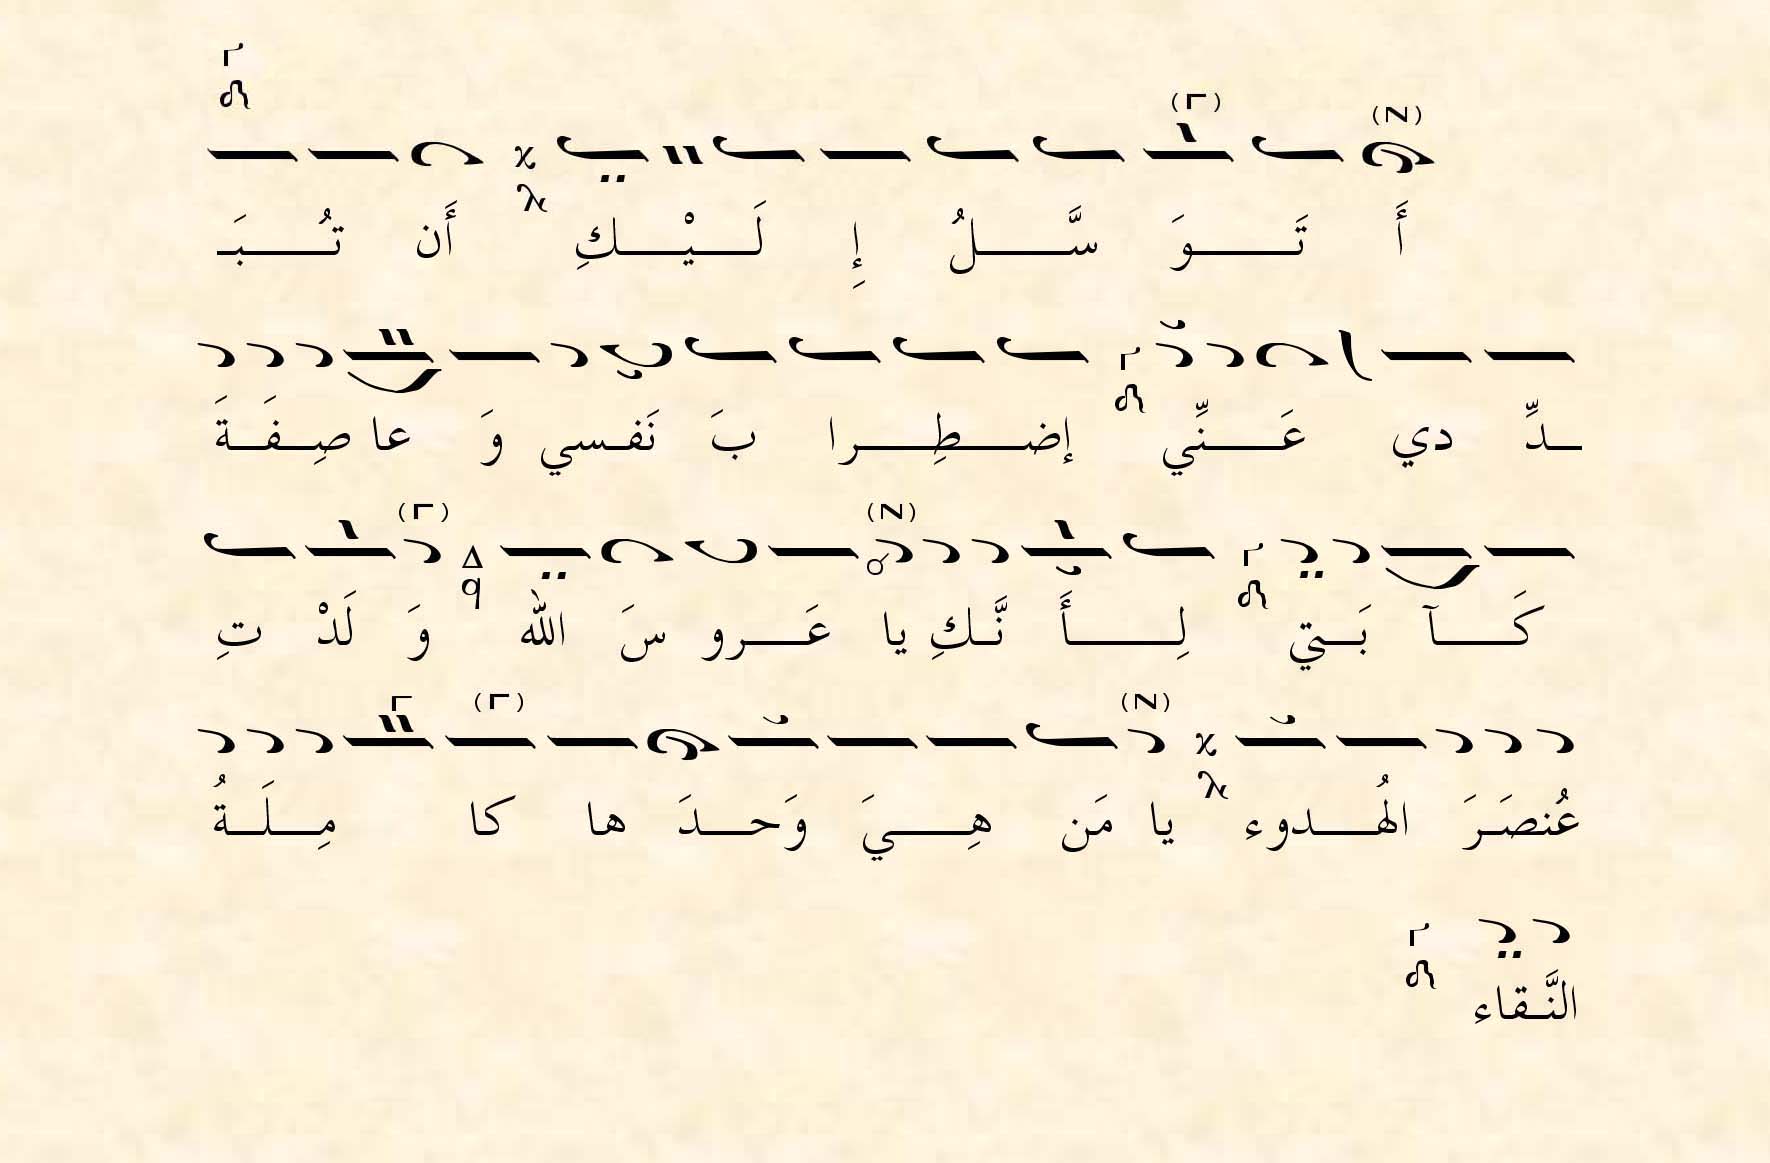 أَ تَـــوَ سَّـــلُ إِ لَـــيْـــكِ أَن تُـــبَـ
ـدِّ دي عَـــنِّي إضـــطِـــرا بَ نَفـسي وَ عا صِـفَـةَ
كَـــآ بَـتي لِـــأَ نَّـكِ يا عَـــرو سَ الله وَ لَدْ تِ
عُنصَـرَ الهُـــدوء يا مَن هِـــيَ وَحـــدَ ها كا مِـــلَـةُ
النَّـقاء